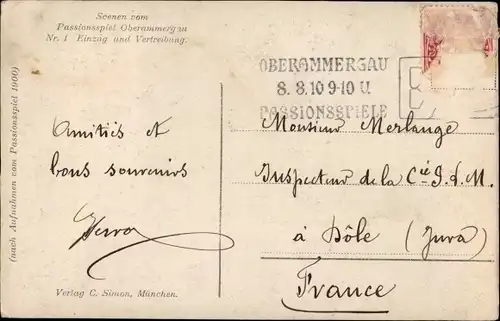 Scenen vom
Passionsspiel Oberammergau
Nr. 1 Einzug und Vertreibung.
OBERAMMERGAU
8. 8.10 9-10 U.
PASSIONSSPIELE
(nach Aufnahmen vom Passionsspiel 1900)
Amitiés et
bons souvenirs
Monsieur Merlange
Inspecteur de la Cie
à Dôle (Jura)
France
Verlag C. Simon, München.